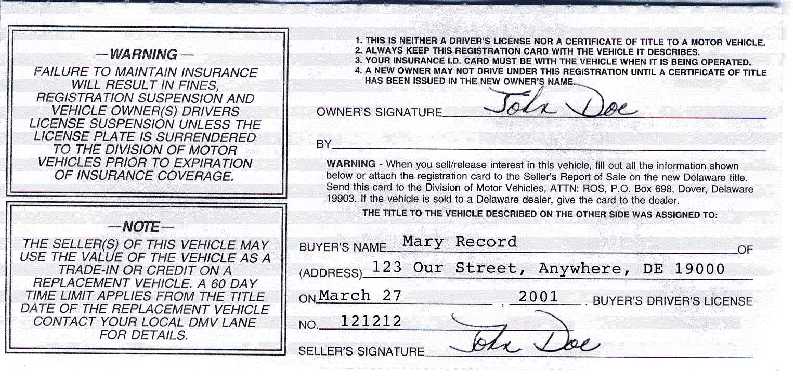 —WARNING—
FAILURE TO MAINTAIN INSURANCE
WILL RESULT IN FINES,
REGISTRATION SUSPENSION AND
VEHICLE OWNER(S) DRIVERS
LICENSE SUSPENSION UNLESS THE
LICENSE PLATE IS SURRENDERED
TO THE DIVISION OF MOTOR
VEHICLES PRIOR TO EXPIRATION
OF INSURANCE COVERAGE.
—NOTE—
THE SELLER(S) OF THIS VEHICLE MAY
USE THE VALUE OF THE VEHICLE AS A
TRADE-IN OR CREDIT ON A
REPLACEMENT VEHICLE. A 60 DAY
TIME LIMIT APPLIES FROM THE TITLE
DATE OF THE REPLACEMENT VEHICLE
CONTACT YOUR LOCAL DMV LANE
FOR DETAILS.
1. THIS IS NEITHER A DRIVER'S LICENSE NOR A CERTIFICATE OF TITLE TO A MOTOR VEHICLE.
2. ALWAYS KEEP THIS REGISTRATION CARD WITH THE VEHICLE IT DESCRIBES.
3. YOUR INSURANCE I.D. CARD MUST BE WITH THE VEHICLE WHEN IT IS BEING OPERATED.
4. A NEW OWNER MAY NOT DRIVE UNDER THIS REGISTRATION UNTIL A CERTIFICATE OF TITLE
HAS BEEN ISSUED IN THE NEW OWNER'S NAME.
OWNER'S SIGNATURE John Doe
BY
WARNING - When you sell/release interest in this vehicle, fill out all the information shown
below or attach the registration card to the Seller's Report of Sale on the new Delaware title.
Send this card to the Division of Motor Vehicles, ATTN: ROS, P.O. Box 698, Dover, Delaware
19903. If the vehicle is sold to a Delaware dealer, give the card to the dealer.
THE TITLE TO THE VEHICLE DESCRIBED ON THE OTHER SIDE WAS ASSIGNED TO:
BUYER'S NAME Mary Record OF
(ADDRESS) 123 Our Street, Anywhere, DE 19000
ON March 27 , 2001 . BUYER'S DRIVER'S LICENSE
NO. 121212
SELLER'S SIGNATURE John Doe